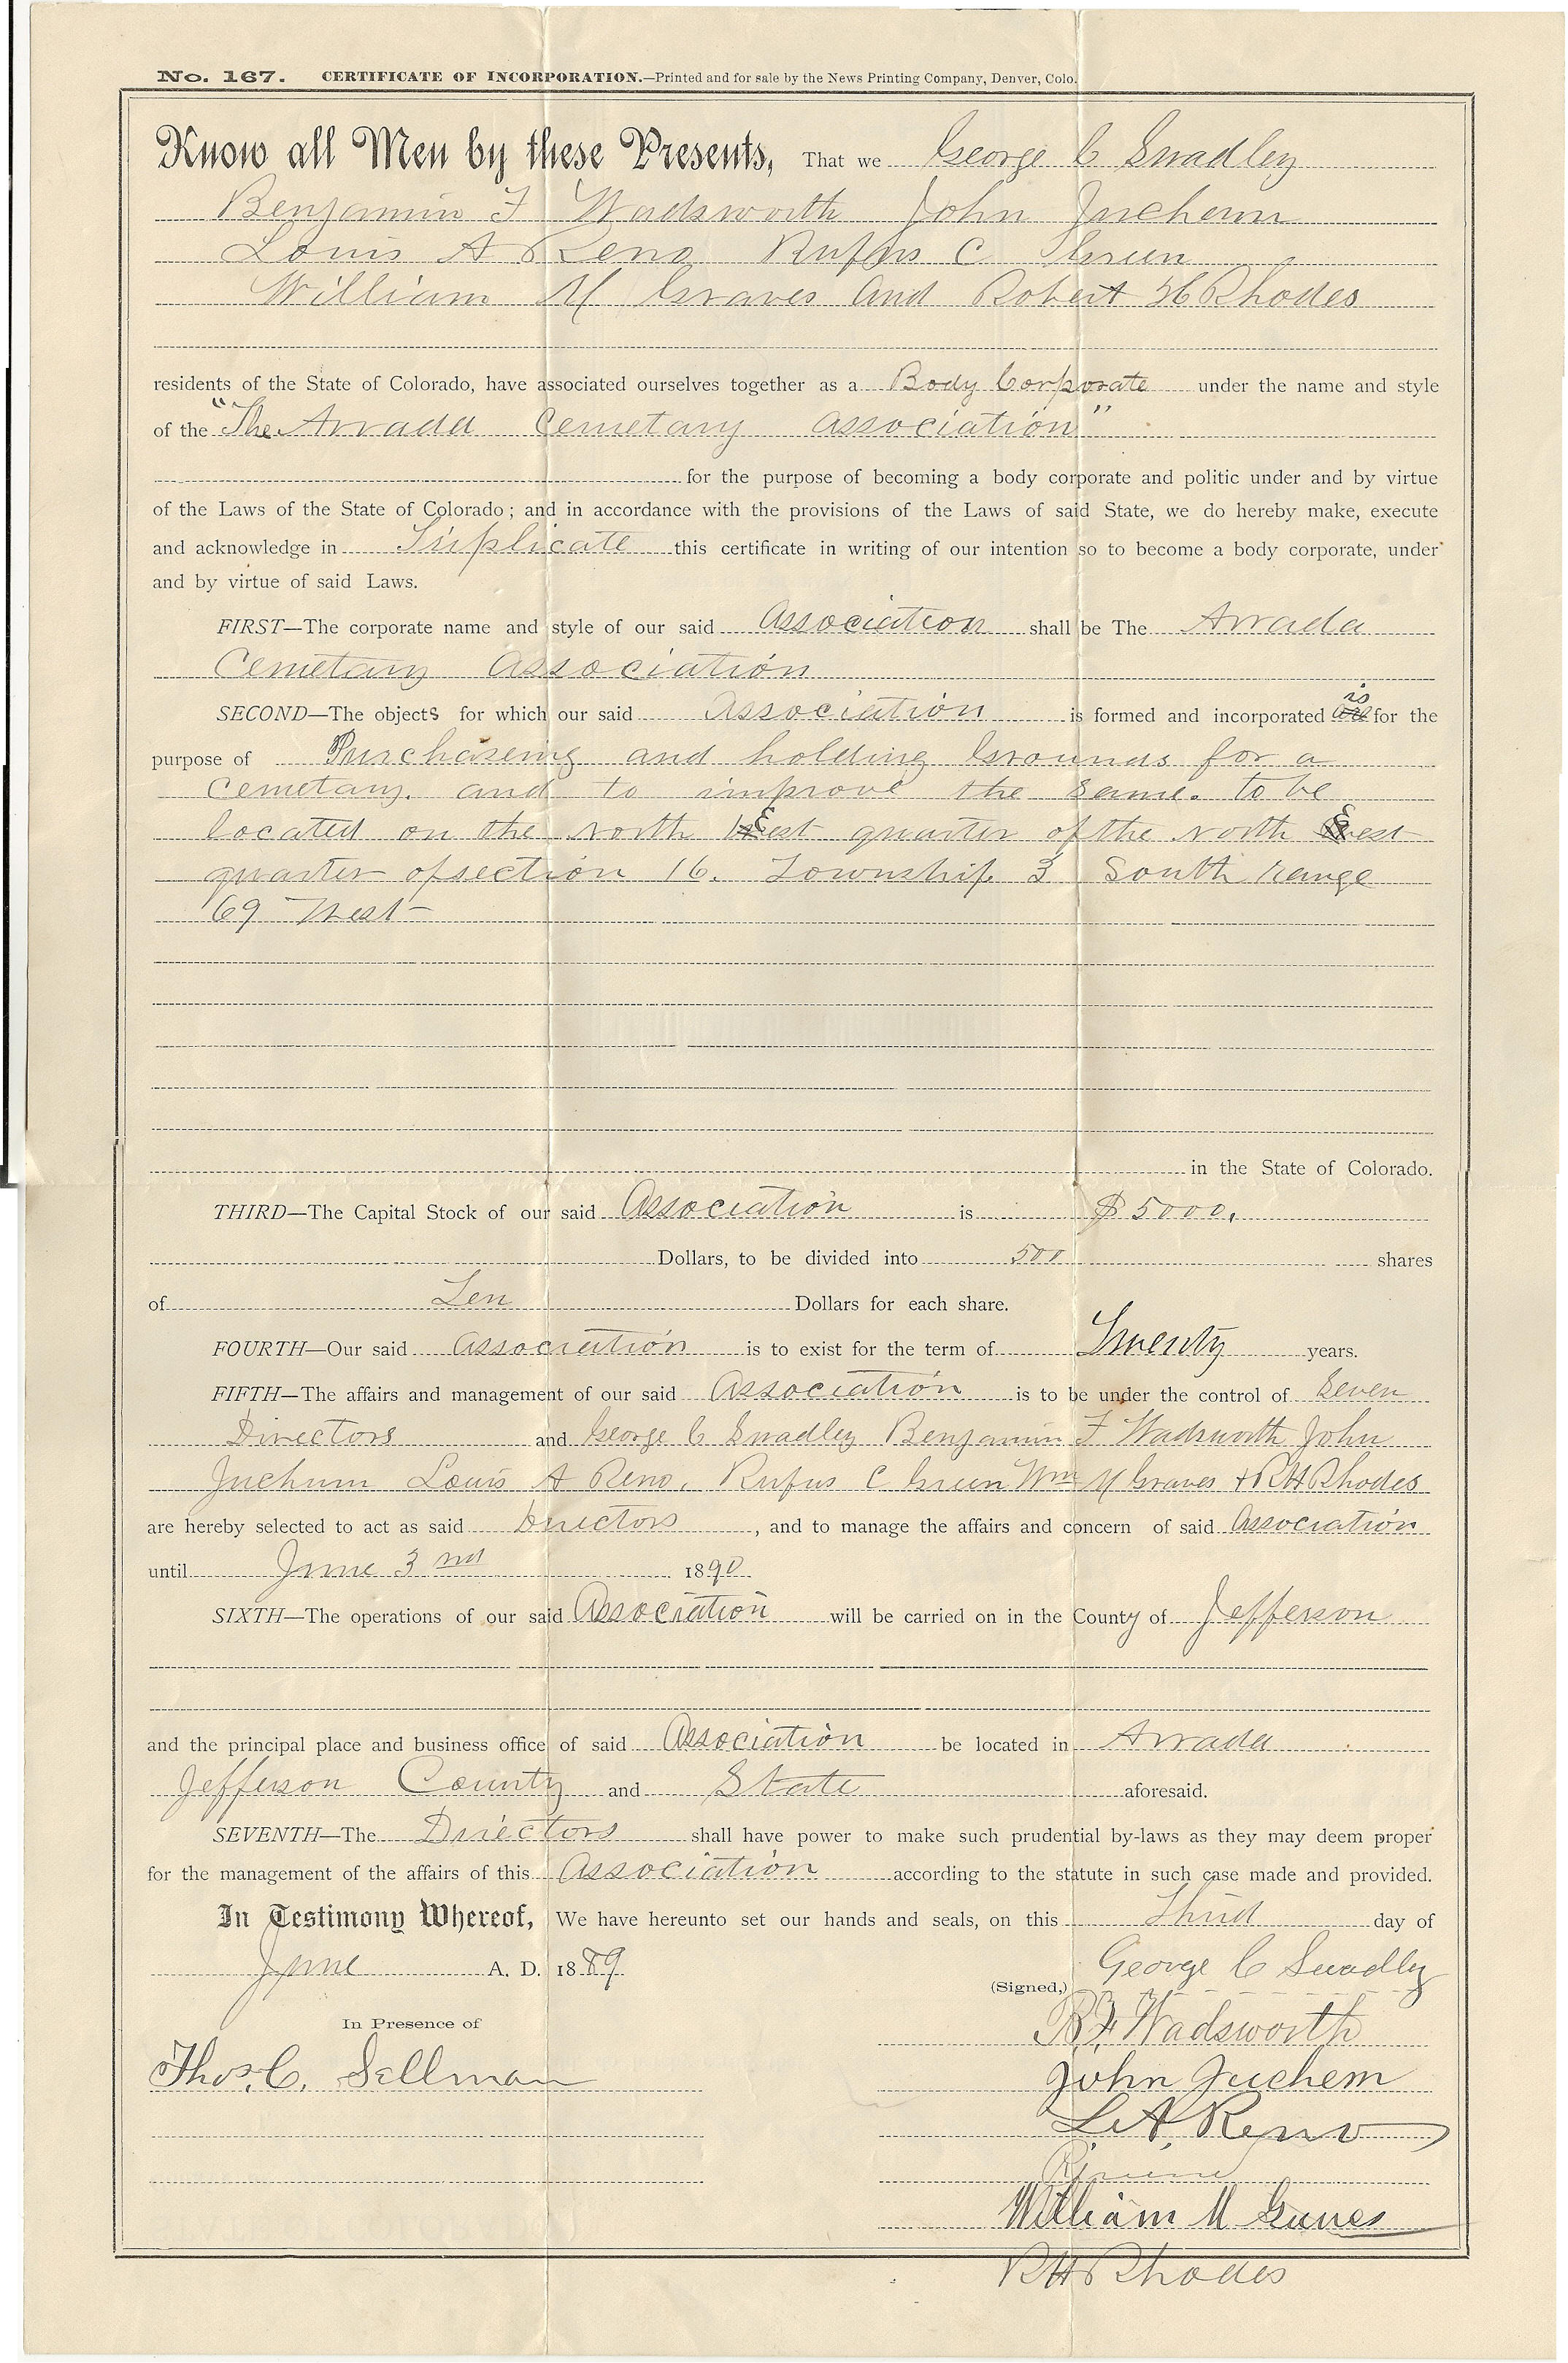 No. 167. CERTIFICATE OF INCORPORATION.—Printed and for sale by the News Printing Company, Denver, Colo.
Know all Men by these Presents, That we George C Swadley
Benjamin F Wadsworth John Juchem
Louis A Reno Rufus C Green
William M Graves and Robert H Rhodes
residents of the State of Colorado, have associated ourselves together as a Body Corporate under the name and style
of the "The Arvada Cemetary Association"
for the purpose of becoming a body corporate and politic under and by virtue
of the Laws of the State of Colorado; and in accordance with the provisions of the Laws of said State, we do hereby make, execute
and acknowledge in Triplicate this certificate in writing of our intention so to become a body corporate, under
and by virtue of said Laws.
FIRST—The corporate name and style of our said Association shall be The Arvada
Cemetary Association
SECOND—The objects for which our said Association is formed and incorporated is for the
purpose of Purchaseing and holding Grounds for a
Cemetary. and to improve the Same. to be
located on the north East quarter of the north East
quarter of section 16. Township 3 South range
69 West
in the State of Colorado.
THIRD—The Capital Stock of our said Association is $5000.
Dollars, to be divided into 500 shares
of Ten Dollars for each share.
FOURTH—Our said Association is to exist for the term of Twenty years.
FIFTH—The affairs and management of our said Association is to be under the control of Seven
Directors and George C Swadley Benjamin F Wadsworth John
Juchem Louis A Reno. Rufus C Green Wm M Graves + R H Rhodes
are hereby selected to act as said Directors, and to manage the affairs and concern of said Association
until June 3rd 1890
SIXTH—The operations of our said Association will be carried on in the County of Jefferson
and the principal place and business office of said Association be located in Arvada
Jefferson County and State aforesaid.
SEVENTH—The Directors shall have power to make such prudential by-laws as they may deem proper
for the management of the affairs of this Association according to the statute in such case made and provided.
In Testimony Whereof, We have hereunto set our hands and seals, on this Third day of
June A. D. 1889
(Signed,) George C Swadley
In Presence of
B. F. Wadsworth
Thos. C. Sellman
John Juchem
L. A. Reno
William M Graves
R H Rhodes